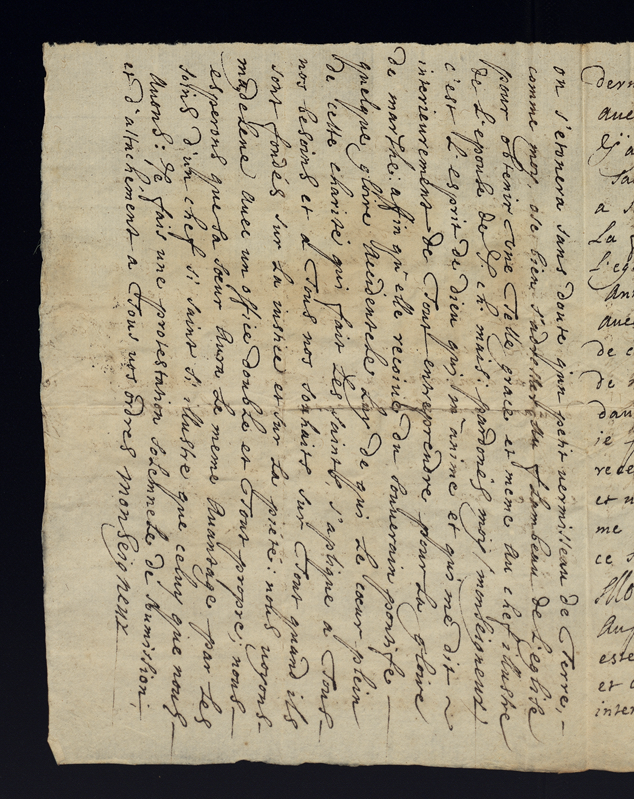 on s'etonera sans doute qu'un petit vermisseau de Terre,
comme moy, ose bien s'adresser au flambeau de L'eglise
pour obtenir une Telle grace et meme au chef illustre
de L'epouse de J. ch. mais pardonés moy, monseigneur
c'est L'esprit de dieu qui m'anime et qui me dit
interieurement de Tout entreprendre pour La gloire
de marthe; affin qu'elle recoive du Souverain pontife
quelque gloire Accidentele Luy de qui Le cœur plein
de cette charité qui fait Les saints s'aplique a Tous
nos besoins et a Tous nos souhaits sur Tout quand ils
sont fondés sur La justice et sur La pieté: nous voyons
madelene avec un office double et Tout propre, nous
esperons que sa sœur Aura Le meme Avantage par Les
soins d'un chef si saint si illustre que celuy que nous
Avons; Je fais une protestation solemnele de sumission,
et d'attachement a Tous vos ordres Monseigneur
dern
ave
a s
La
L'eg
An
ave
de c
de
dau
je
rece
et
me
ce s
Au
este
et
inter